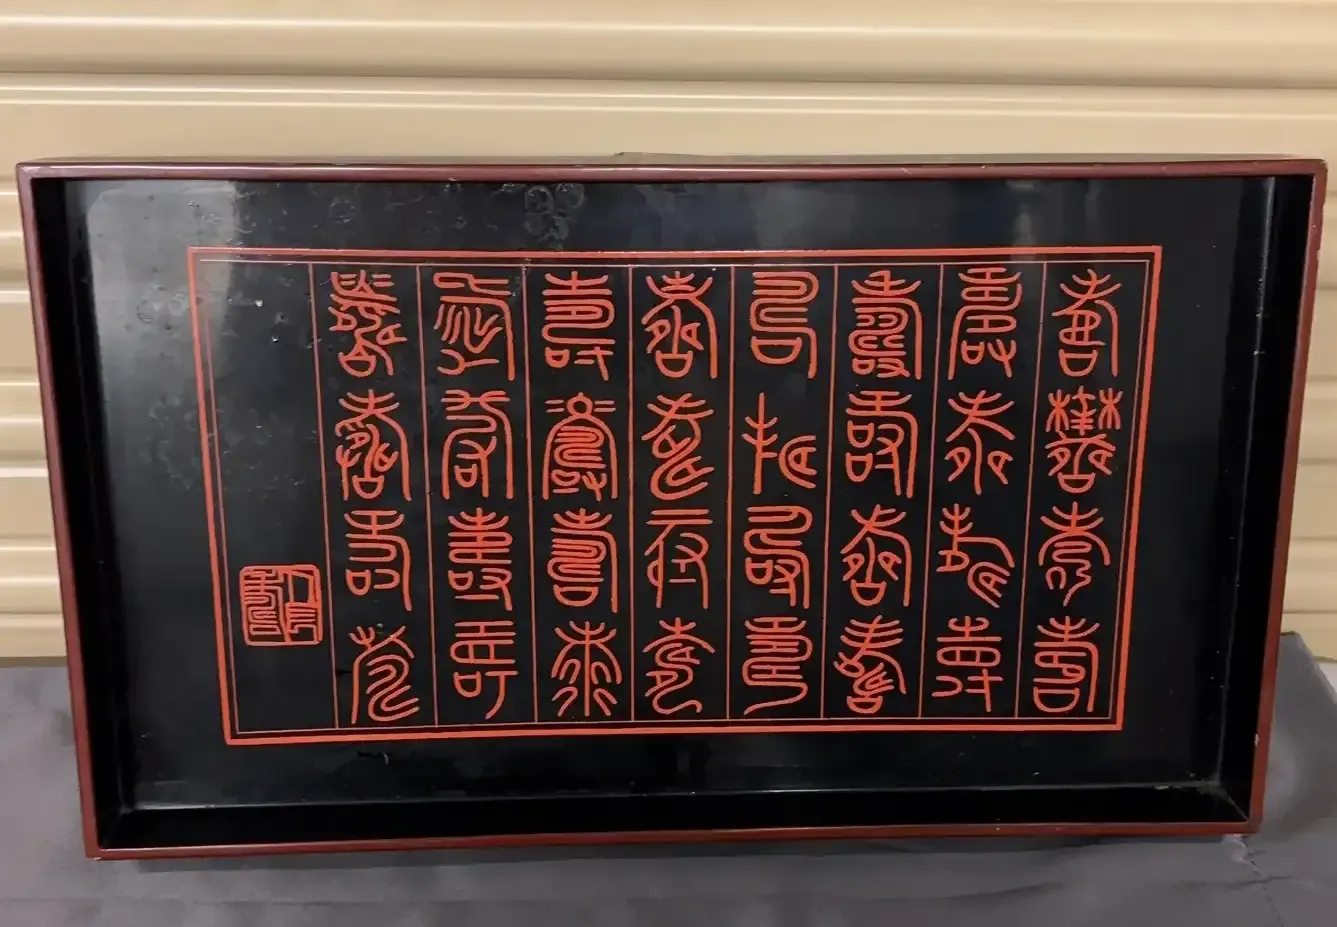 壽壽壽壽
壽壽壽壽
壽壽壽壽
壽壽壽壽
壽壽壽壽
壽壽壽壽
壽壽壽壽
壽壽壽壽